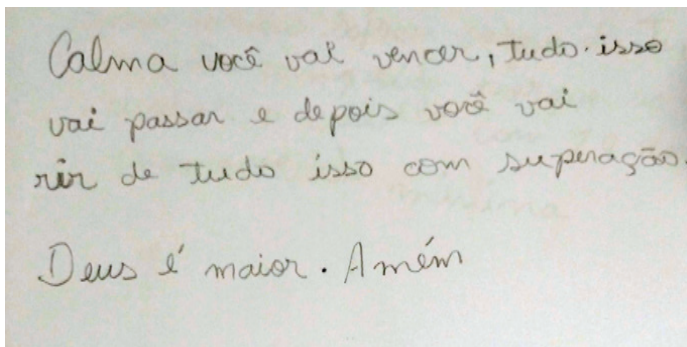 Calma você vai vencer, tudo isso
vai passar e depois você vai
rir de tudo isso com superação.
Deus é maior. Amém